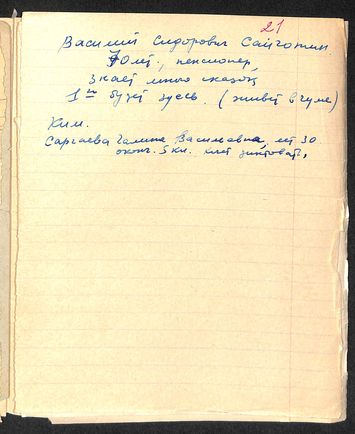 21
Василий Сидорович Сайготин.
70 лет, пенсионер,
знает много сказок
1го будет здесь. (живёт в чуме)
Ким.
Саргаева Галина Васильевна, лет 30
оконч. 5 кл.